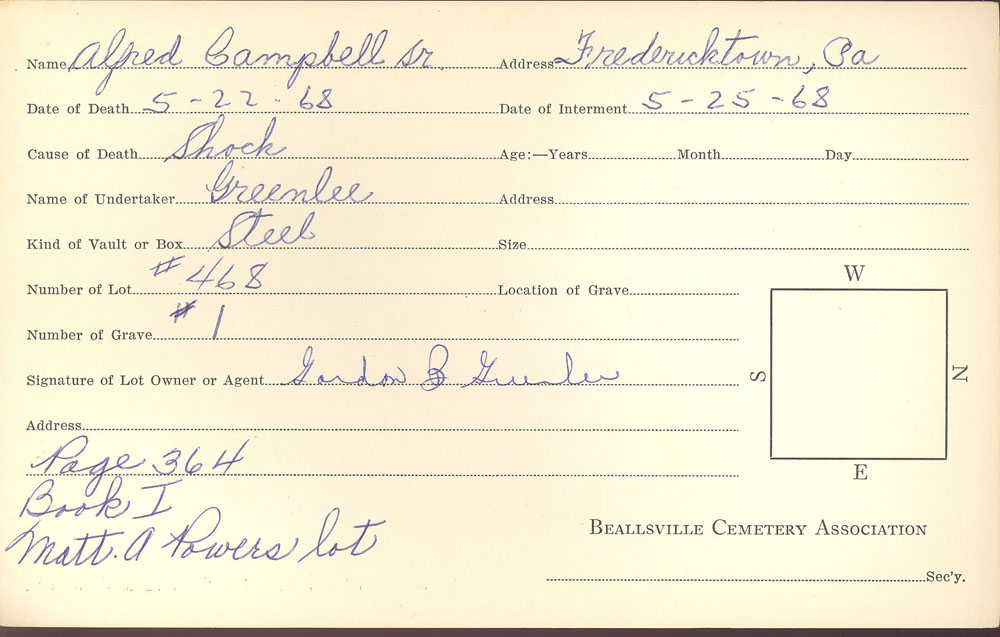 Name Alfred Campbell Sr. Address Fredericktown, Pa
Date of Death 5-22-68 Date of Interment 5-25-68
Cause of Death Shock Age:—Years Month Day
Name of Undertaker Greenlee Address
Kind of Vault or Box Steel Size
Number of Lot #468 Location of Grave
Number of Grave #1
Signature of Lot Owner or Agent Gordon B Greenlee
Address
Page 364
Book I
Matt. A Powers lot
W
S N
E
Beallsville Cemetery Association
Sec'y.